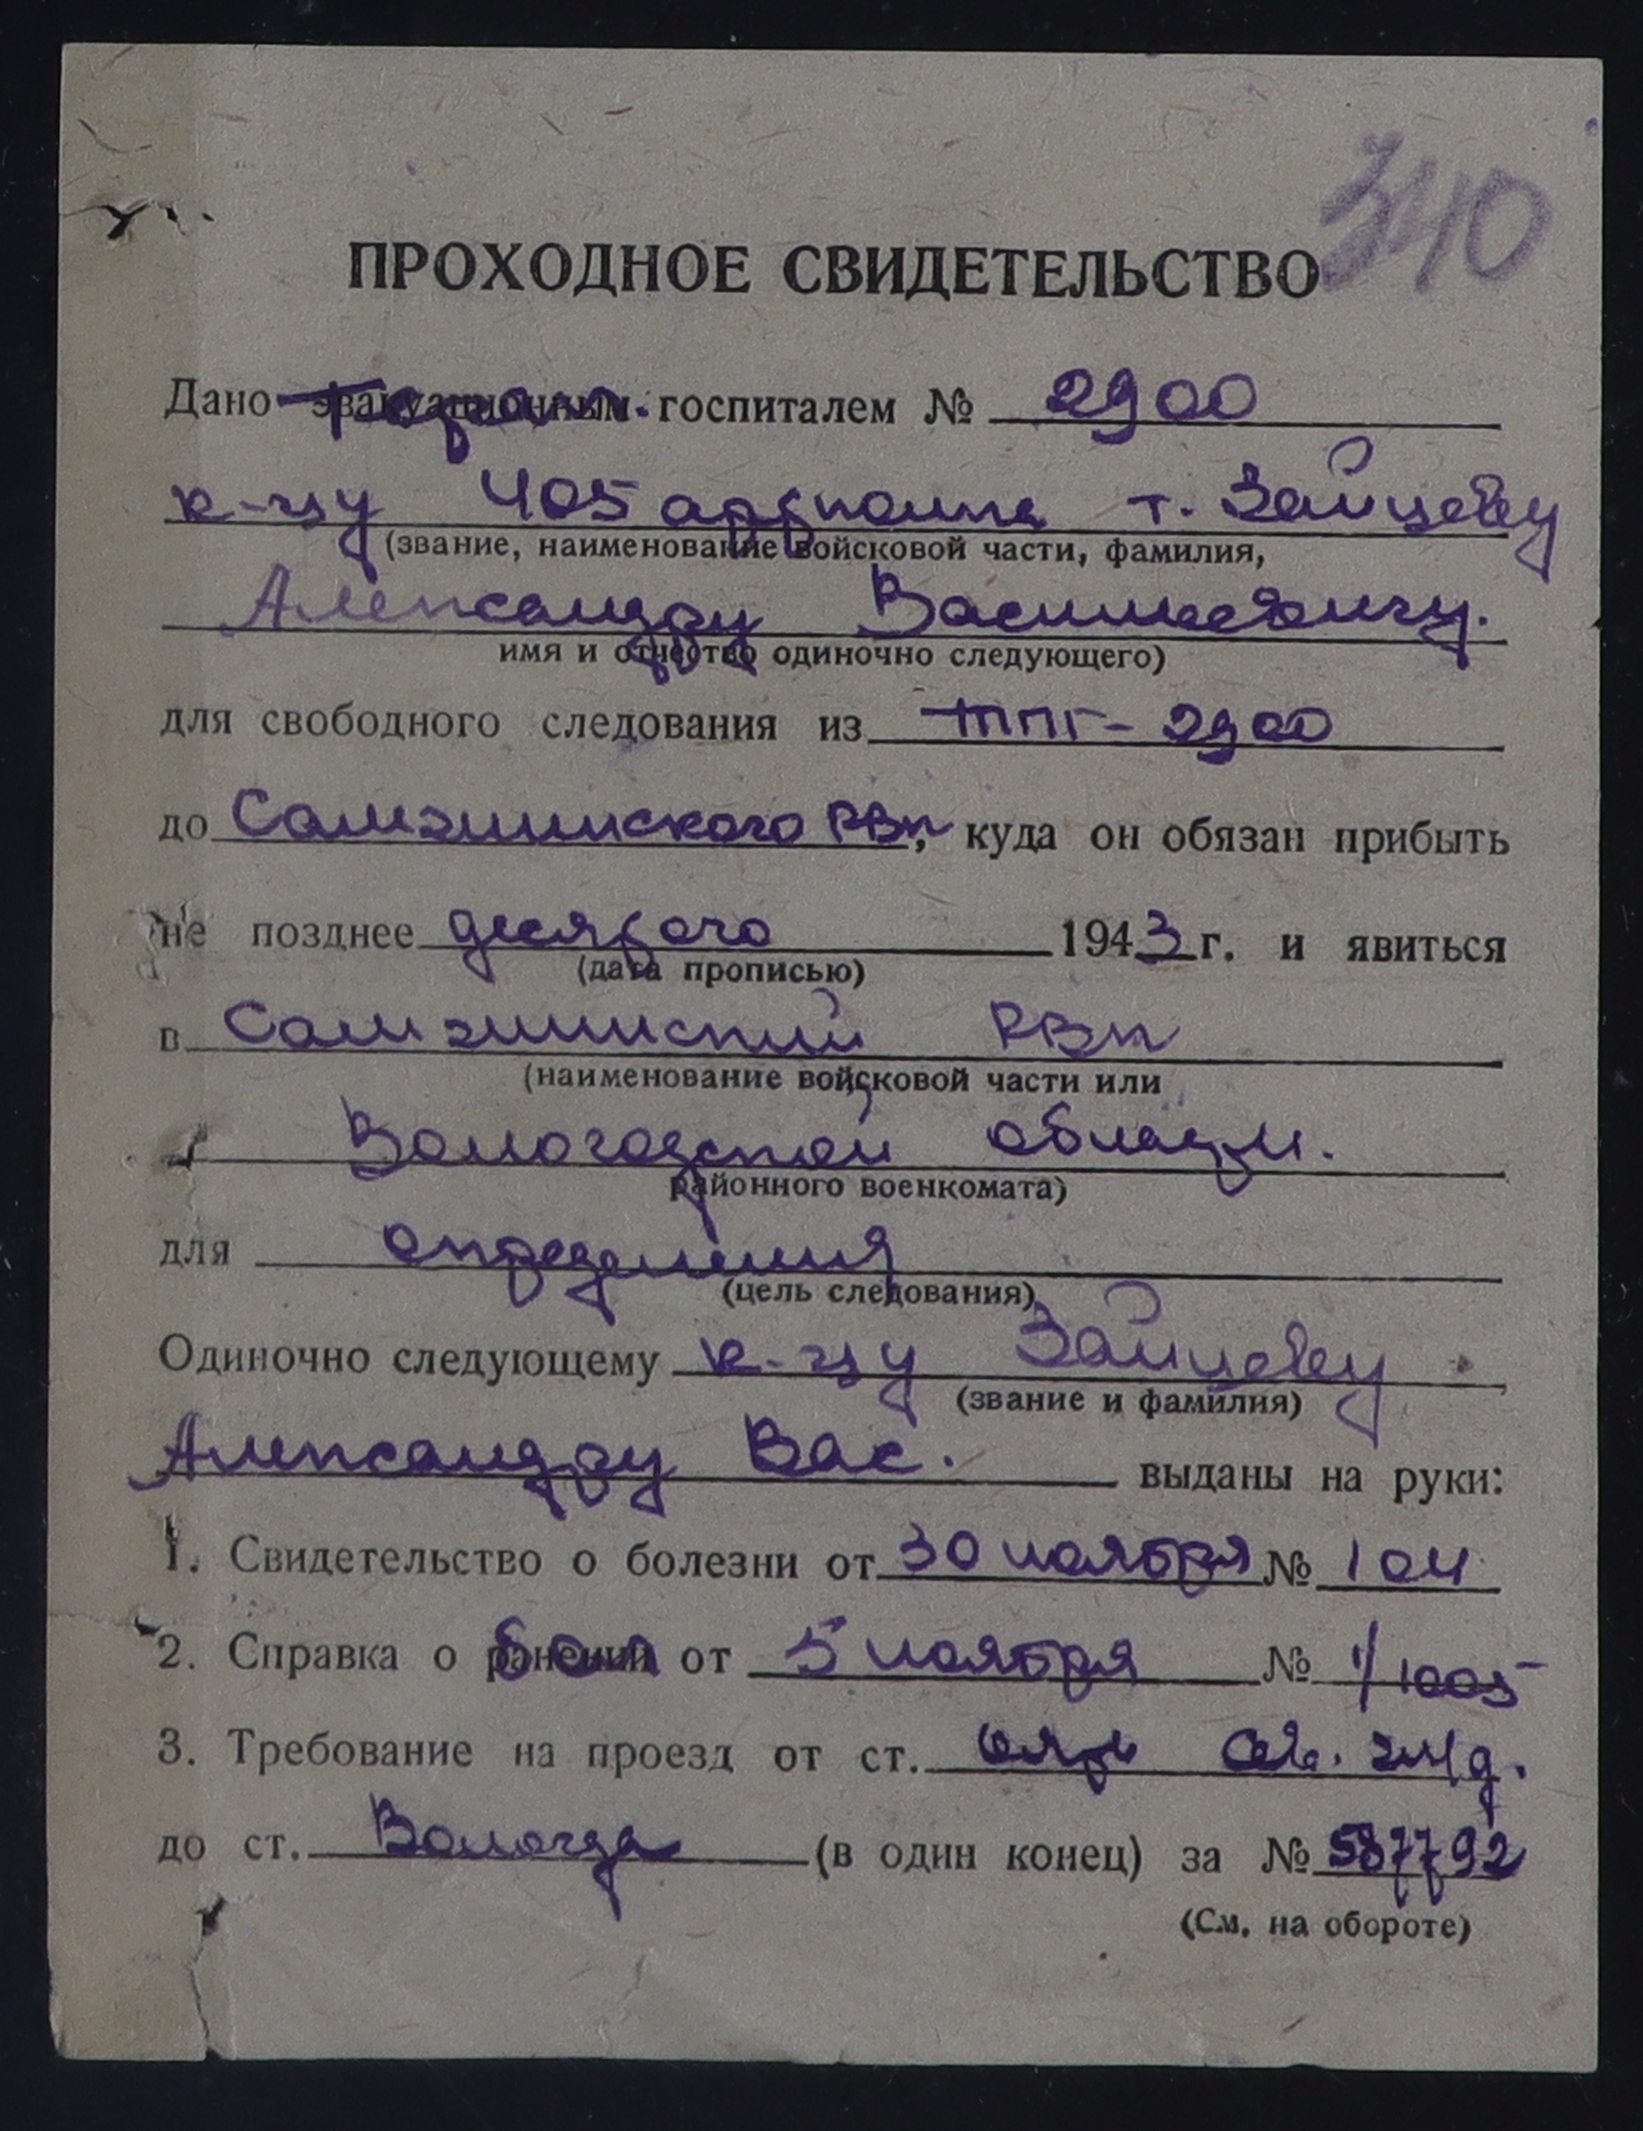 340
ПРОХОДНОЕ СВИДЕТЕЛЬСТВО
Дано эвакуационным госпиталем № 2900
к-цу 405 артполка т. Зайцеву
(звание, наименование войсковой части, фамилия,
Александру Васильевичу.
имя и отчество одиночно следующего)
для свободного следования из ТППГ-2900
до Самжинского РВк, куда он обязан прибыть
не позднее десятого 1943 г. и явиться
(дата прописью)
в Самжинский РВк
(наименование войсковой части или
Вологодской области.
районного военкомата)
для определения
(цель следования)
Одиночно следующему к-цу Зайцеву
(звание и фамилия)
Александру Вас. выданы на руки:
1. Свидетельство о болезни от 30 ноября № 104
2. Справка о ранении бол от 5 ноября № 1/1005
3. Требование на проезд от ст. Оять жд.
до ст. Вологда (в один конец) за № 587792
(См. на обороте)